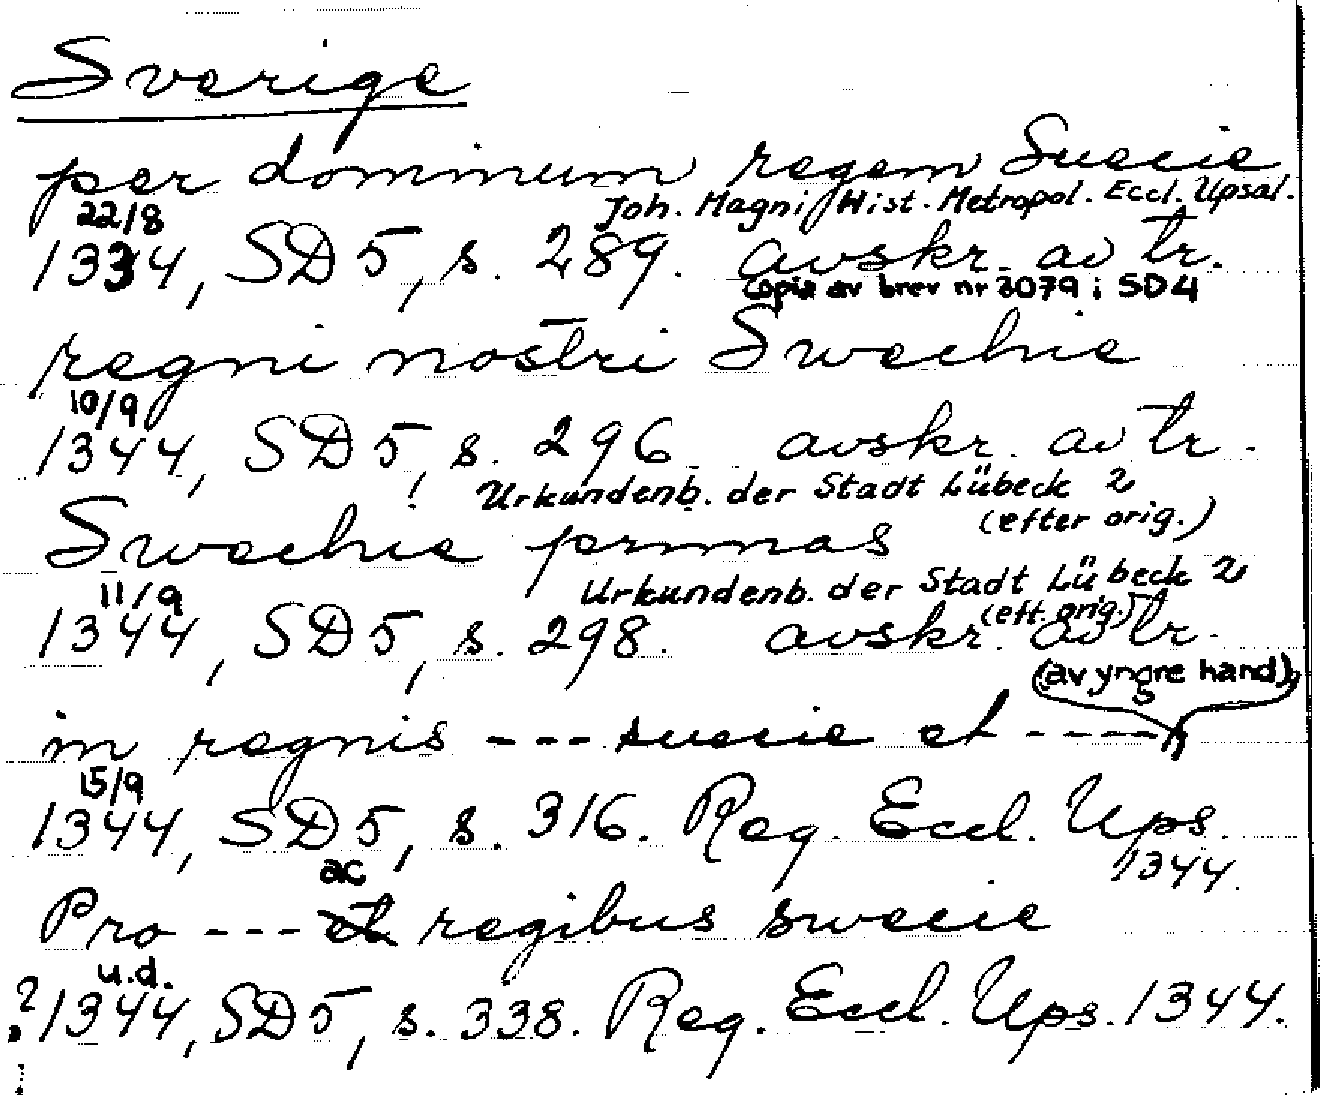 Sverige
per dominum regem Suecie
22/8 Joh. Magni Hist. Metropol. Eccl. Upsal.
1334, SD 5, s. 289. avskr. av tr.
Copia av brev nr 3079 i SD4
regni nostri Swechie
10/9
1344, SD 5, s. 296 avskr. av tr.
Urkundenb. der Stadt Lübeck 2
(efter orig.)
Swechie primas
11/9 Urkundenb. der Stadt Lübeck 2
(eft. orig.)
1344, SD 5, s. 298. avskr. av tr.
(av yngre hand)
in regnis --- suecie et ----
15/9
1344, SD 5, s. 316. Reg. Eccl. Ups.
1344.
ac
Pro --- et regibus swecie
u.d.
?1344, SD 5, s. 338. Reg. Eccl. Ups. 1344.